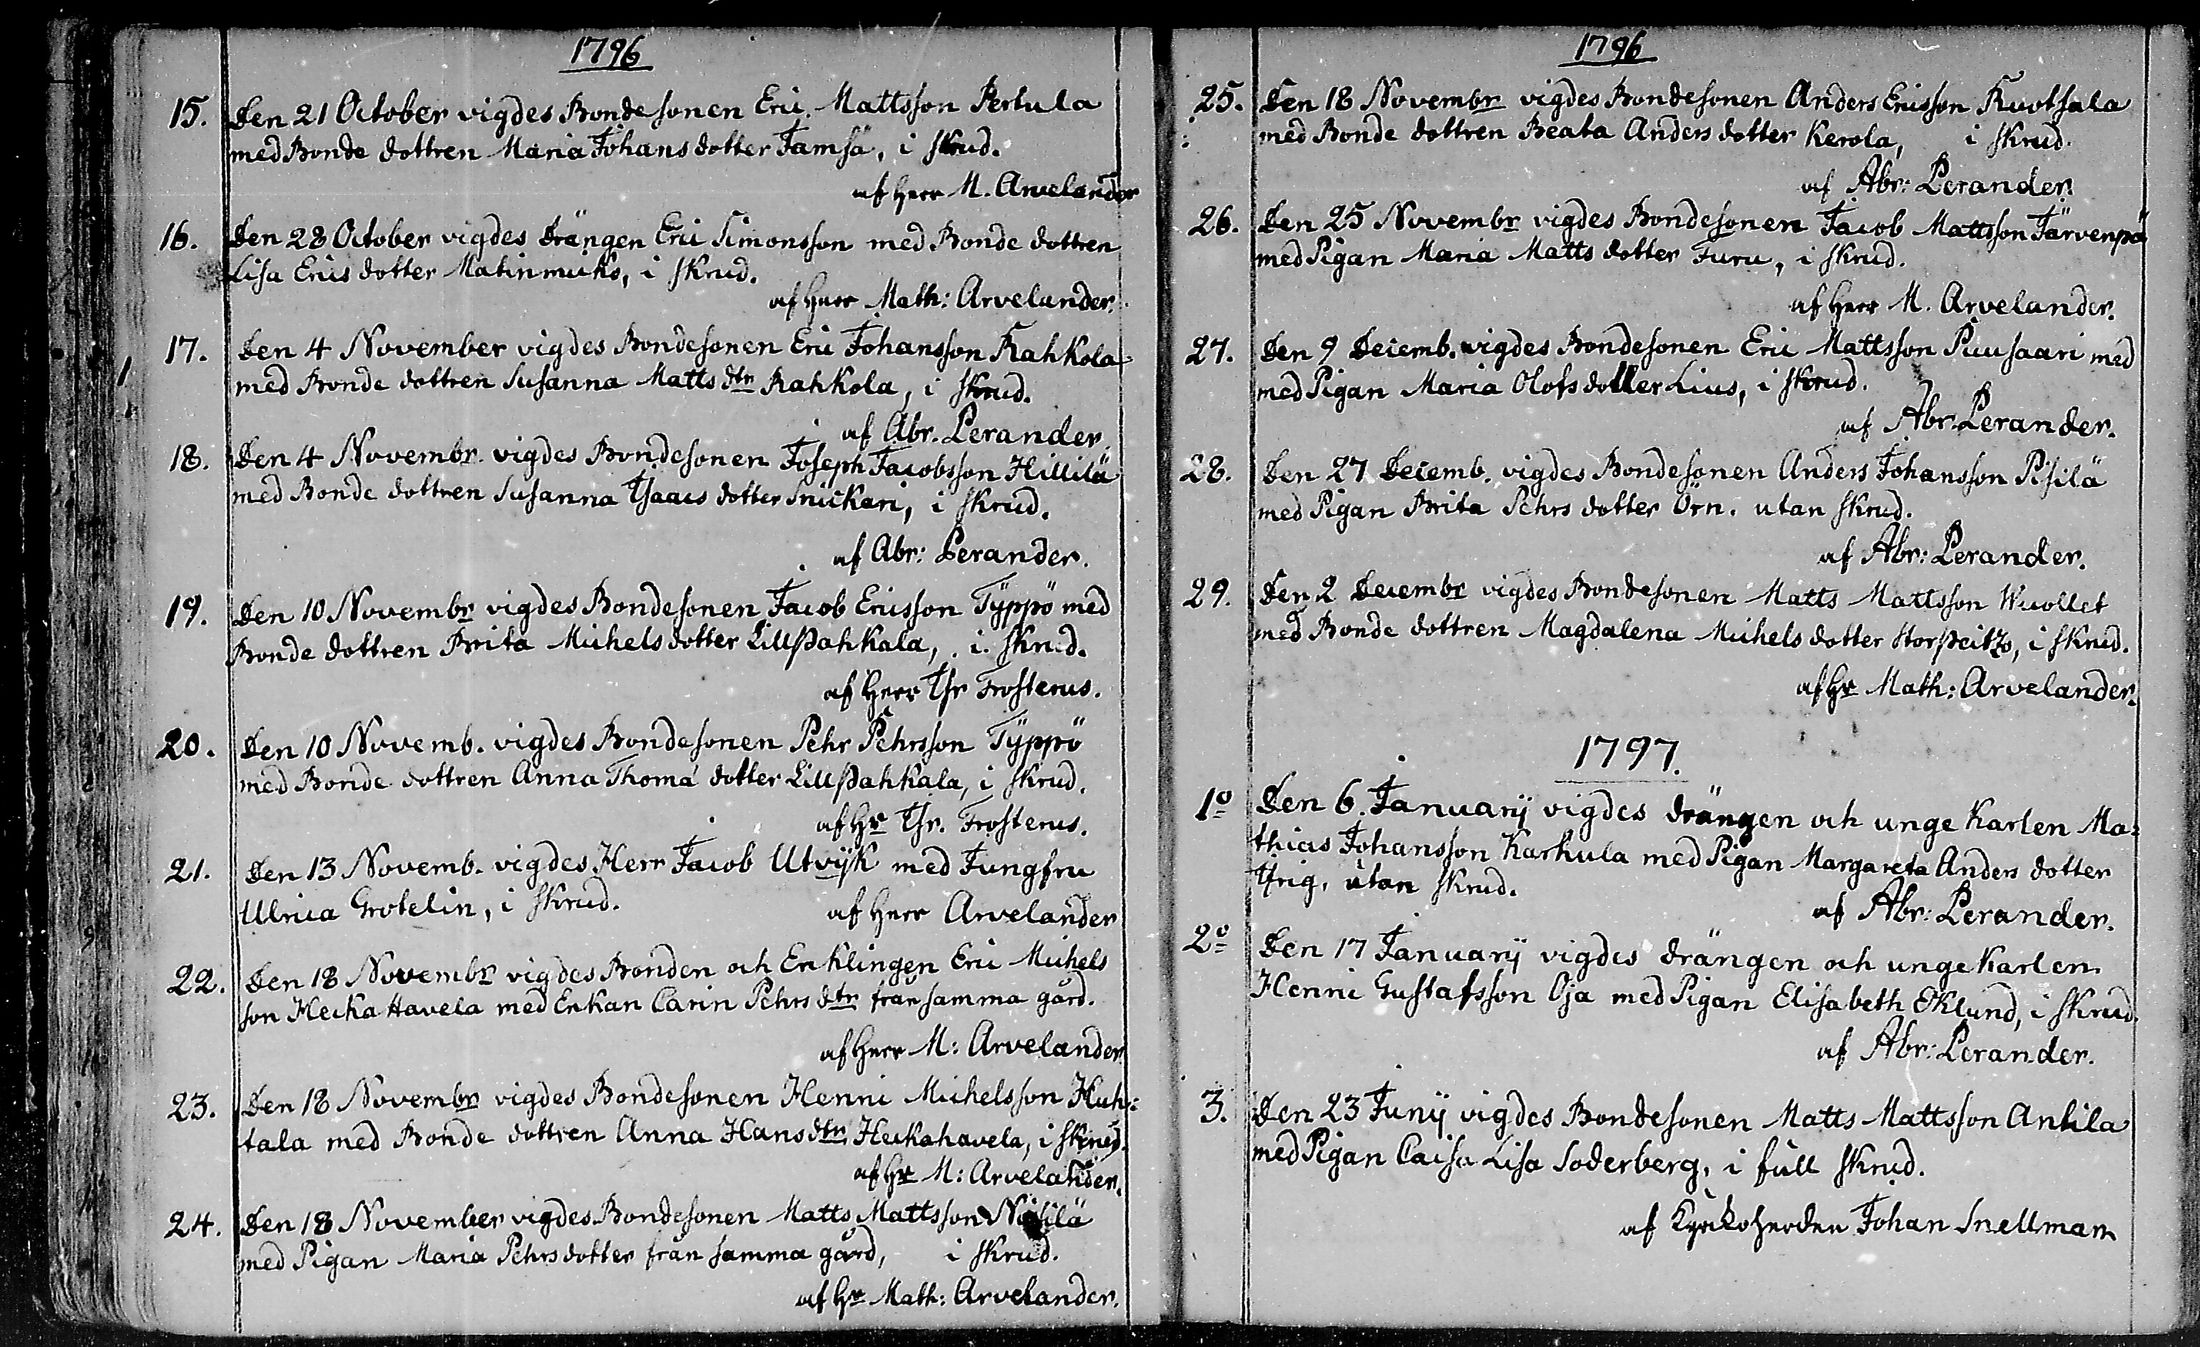 1796
15. Den 21 October vigdes Bondesonen Eric Mattsson Pertula
med Bonde dottren Maria Johans dotter Jamsä, i skrud.
af Herr M. Arvelander
16. Den 28 October vigdes Drängen Eric Simonsson med Bonde dottren
Lisa Erics dotter Matinmicko, i skrud.
af Herr Math: Arvelander.
17. Den 4 November vigdes Bondesonen Eric Johansson Rahkola
med Bonde dottren Susanna Matts dtr Rahkola, i skrud.
af Abr. Perander.
18. Den 4 Novembr vigdes Bondesonen Joseph Jacobsson Hillilä
med Bonde dottren Susanna Isaacs dotter Snickari, i skrud.
af Abr: Perander.
19. Den 10 Novembr vigdes Bondesonen Jacob Ericsson Typpö med
Bonde dottren Brita Michels dotter Lillpahkala, i skrud.
af Herr Thr Frosterus.
20. Den 10 Novemb. vigdes Bondesonen Pehr Pehrsson Typpö
med Bonde dottren Anna Thomæ dotter Lillpahkala, i skrud.
af Hr Thr. Frosterus.
21. Den 13 Novemb. vigdes Herr Jacob Utvijk med Jungfru
Ulrica Grotelin, i skrud. af Herr Arvelander
22. Den 18 Novembr vigdes Bonden och Enklingen Eric Michels
son Heckahavela med Enkan Carin Pehrs dtr från samma gård.
af Herr M: Arvelander
23. Den 18 Novembr vigdes Bondesonen Henric Michelsson Huh:
tala med Bonde dottren Anna Hans dtr Heckahavela, i skrud.
af Hr M: Arvelander.
24. Den 18 November vigdes Bondesonen Matts Mattsson
med Pigan Maria Pehrs dotter från samma gård, i skrud.
af Hr Math: Arvelander.
1796
25. Den 18 Novembr vigdes Bondesonen Anders Ericsson Ruotsala
med Bonde dottren Beata Anders dotter Kerola, i skrud.
af Abr: Perander.
26. Den 25 Novembr vigdes Bondesonen Jacob Mattsson Järvenpä
med Pigan Maria Matts dotter Furu, i skrud.
af Herr M. Arvelander.
27. Den 9 Decemb. vigdes Bondesonen Eric Mattsson Puusaari med
med Pigan Maria Olofs dotter Lius, i skrud.
af Abr: Perander.
28. Den 27 Decemb. vigdes Bondesonen Anders Johansson Pisilä
med Pigan Brita Pehrs dotter Örn. utan skrud.
af Abr: Perander.
29. Den 2 Decembr vigdes Bondesonen Matts Mattsson Wuollet
med Bonde dottren Magdalena Michels dotter Storpeitzo, i skrud.
af Hr Math: Arvelander.
1797.
1o Den 6. Januarij vigdes drängen och unge Karlen Ma:
thias Johansson Karhula med Pigan Margareta Anders dotter
Yrig, utan skrud.
af Abr: Perander.
2o Den 17 Januarij vigdes drängen och unge Karlen
Henric Gustafsson Oja med Pigan Elisabeth Eklund, i skrud.
af Abr: Perander.
3. Den 23 Junij vigdes Bondesonen Matts Mattsson Antila
med Pigan Caisa Lisa Soderberg, i full skrud.
af Kyrkoherden Johan Snellman